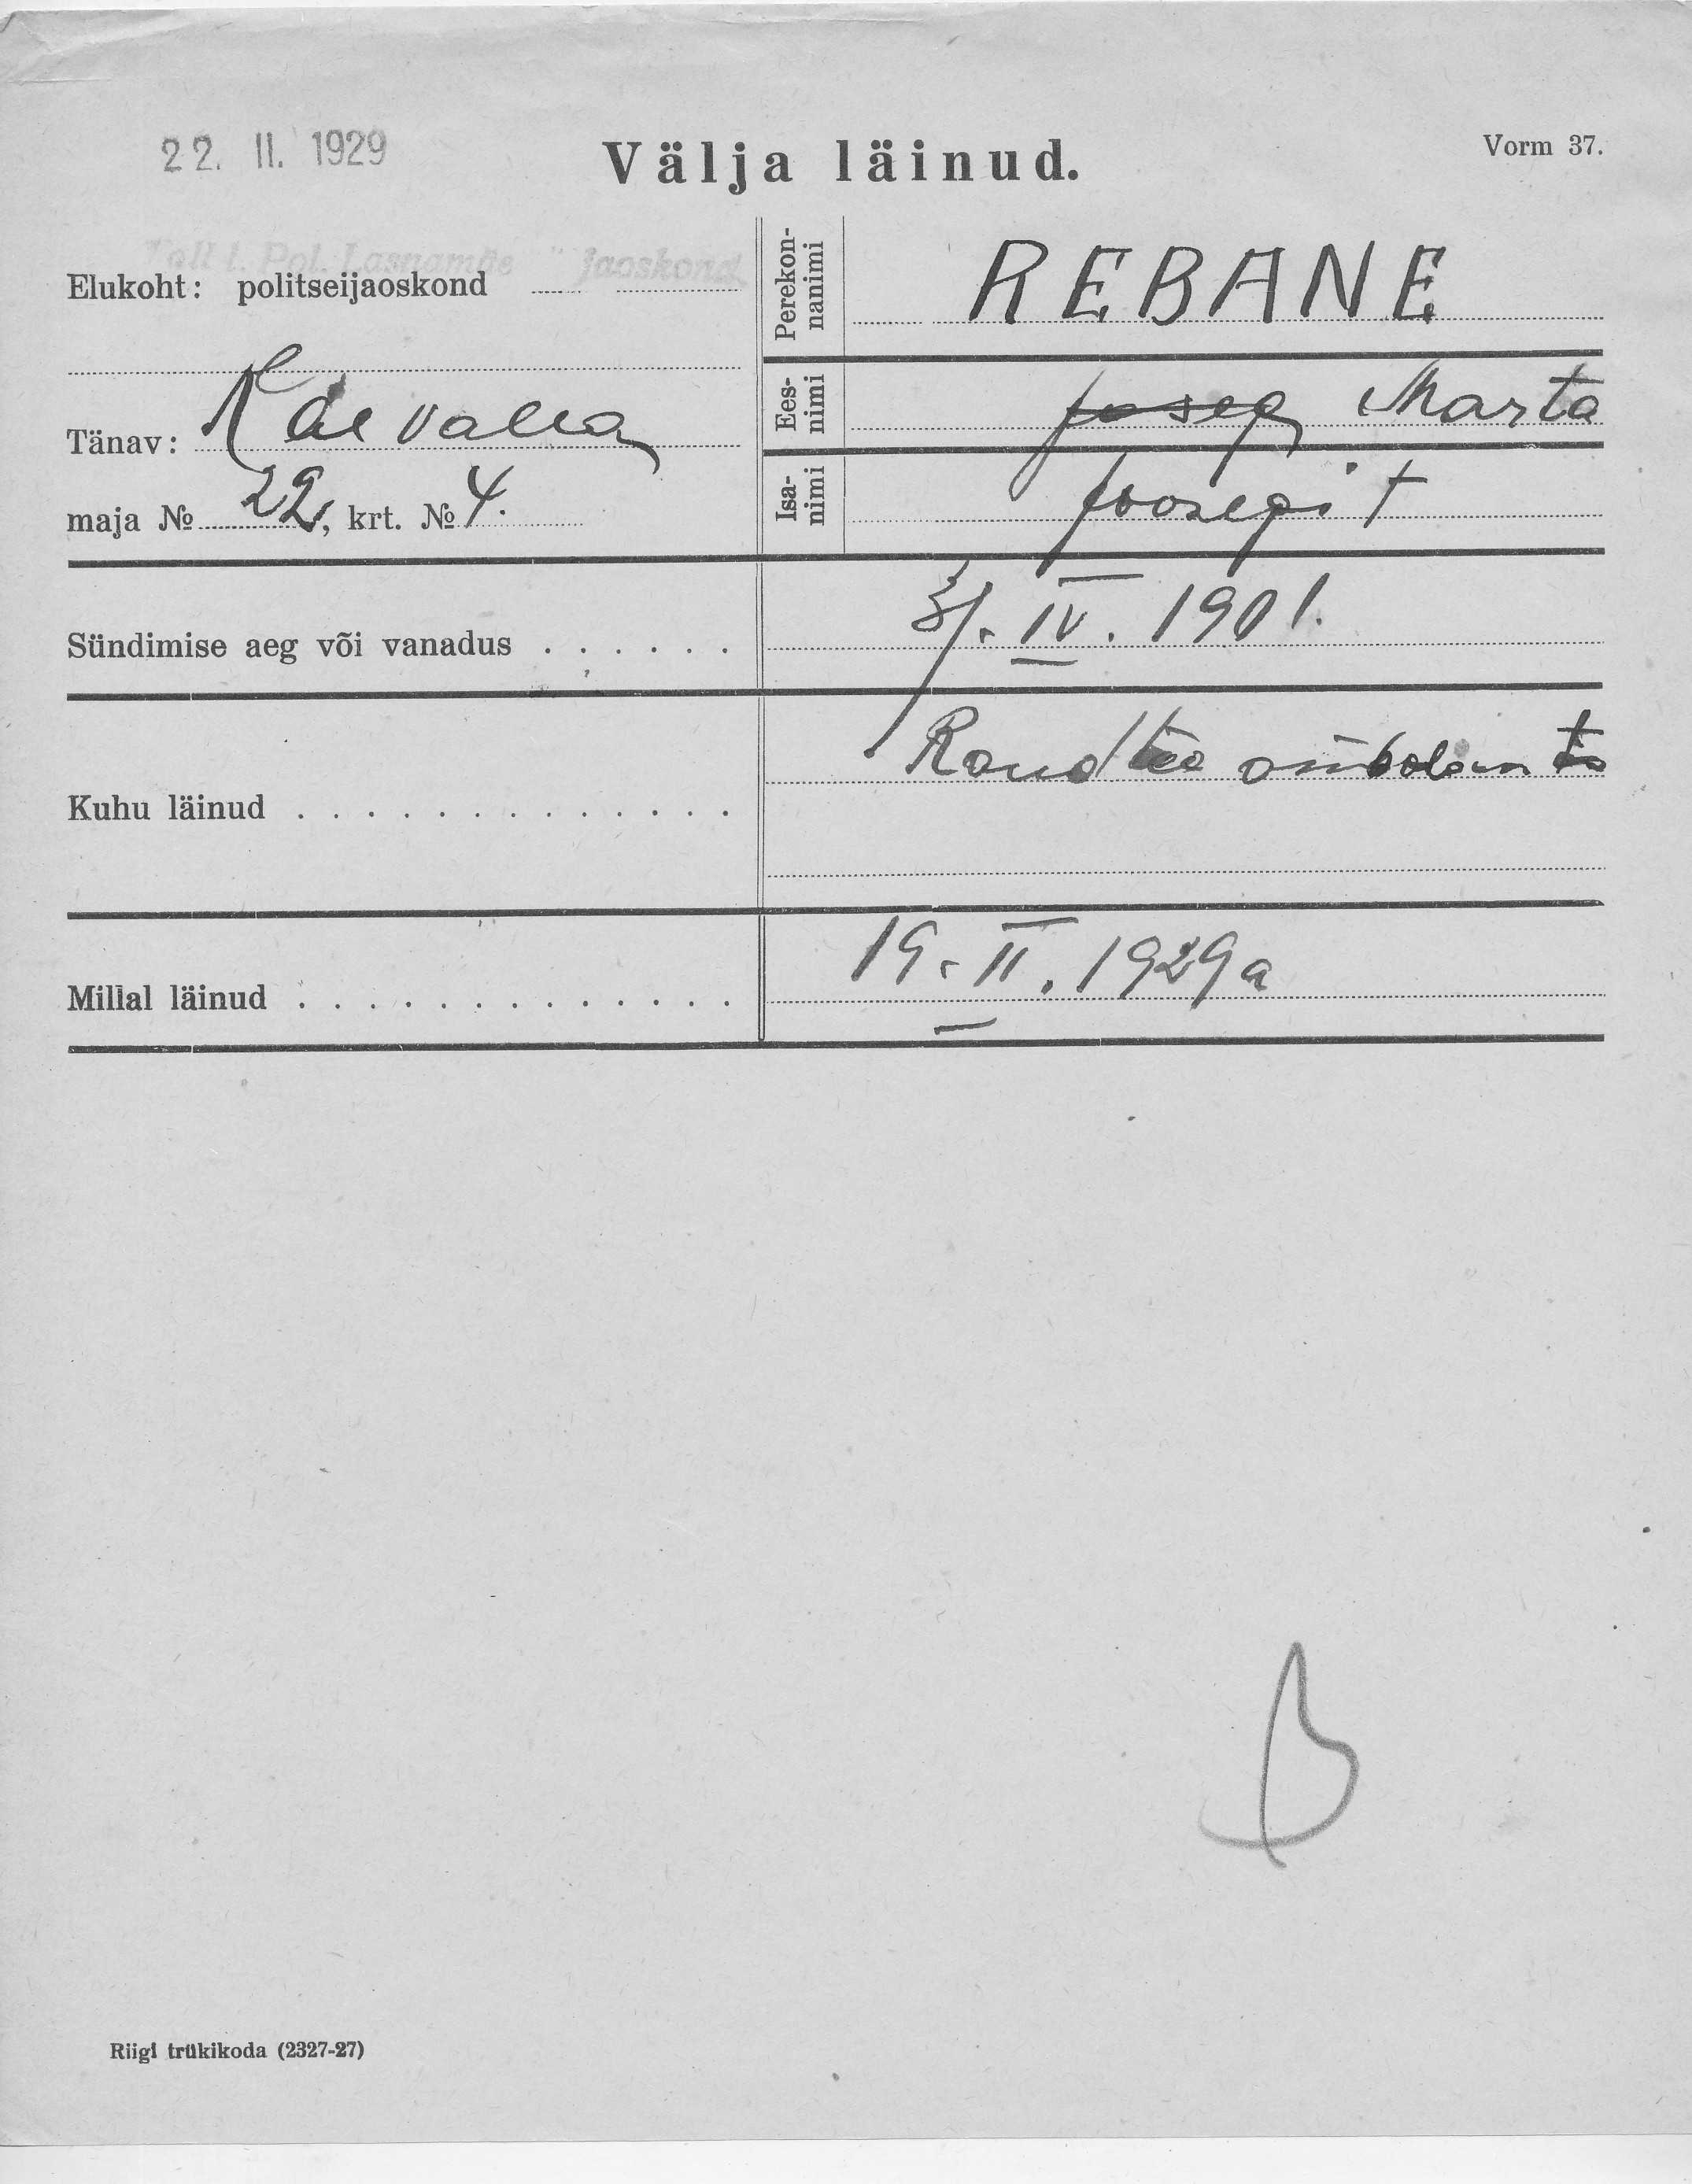 22. II. 1929
Välja läinud.
Vorm 37.
Tall. l. Pol. Lasnamäe " Jaoskond
Elukoht: politseijaoskond
Tänav: Raevalla
maja № 22, krt. № 4.
Perekon-
nanimi
REBANE
Ees-
nimi
Marta
Isa-
nimi
Joosepi t
Sündimise aeg või vanadus . . . . . .
3/. IV. 1901.
Kuhu läinud . . . . . . . . . . . . .
Raudtee
Millal läinud . . . . . . . . . . . . .
19. II. 1929 a
B
Riigi trükikoda (2327-27)